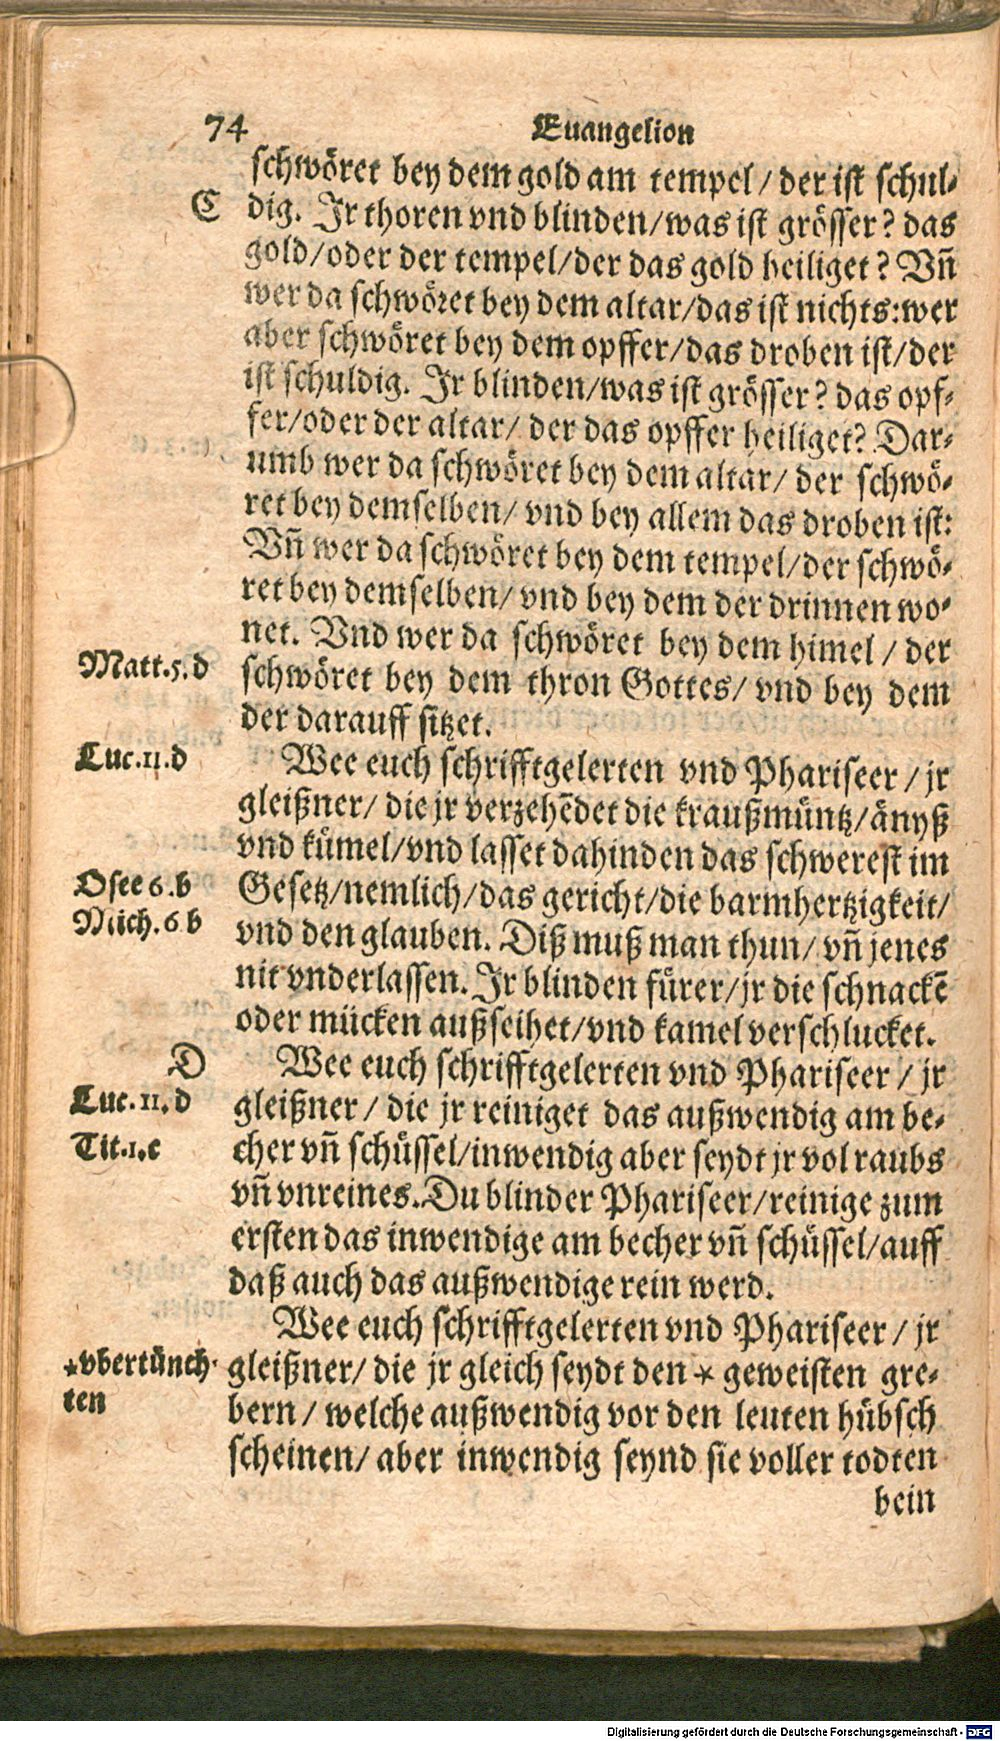 74 Euangelion
schwöret bey dem gold am tempel / der ist schul-
C dig. Jr thoren vnd blinden/was ist grösser? das
gold/oder der tempel/der das gold heiliget? Vñ
wer da schwöret bey dem altar/das ist nichts:wer
aber schwöret bey dem opffer/das droben ist/der
ist schuldig. Jr blinden/was ist grösser? das opf-
fer/oder der altar/ der das opffer heiliget? Dar-
umb wer da schwöret bey dem altar/ der schwö-
ret bey demselben/ vnd bey allem das droben ist:
Vñ wer da schwöret bey dem tempel/der schwö-
ret bey demselben/ vnd bey dem der drinnen wo-
net. Vnd wer da schwöret bey dem himel / der
Matt.5.d schwöret bey dem thron Gottes/ vnd bey dem
der darauff sitzet.
Luc.11.d Wee euch schrifftgelerten vnd Phariseer / jr
gleißner/ die jr verzehēdet die kraußmüntz/änyß
vnd kümel/vnd lasset dahinden das schwerest im
Osee 6.b Gesetz/nemlich/das gericht/die barmhertzigkeit/
Mich.6 b vnd den glauben. Diß muß man thun/ vñ jenes
nit vnderlassen. Jr blinden fürer/jr die schnackē
oder mücken außseihet/vnd kamel verschlucket.
D Wee euch schrifftgelerten vnd Phariseer / jr
Luc.11.d gleißner / die jr reiniget das außwendig am be-
Tit.1.c cher vñ schüssel/inwendig aber seydt jr vol raubs
vñ vnreines. Du blinder Phariseer/reinige zum
ersten das inwendige am becher vñ schüssel/auff
daß auch das außwendige rein werd.
Wee euch schrifftgelerten vnd Phariseer / jr
*vbertünch- gleißner/ die jr gleich seydt den * geweisten gre-
ten bern / welche außwendig vor den leuten hübsch
scheinen/ aber inwendig seynd sie voller todten
bein
Digitalisierung gefördert durch die Deutsche Forschungsgemeinschaft - DFG